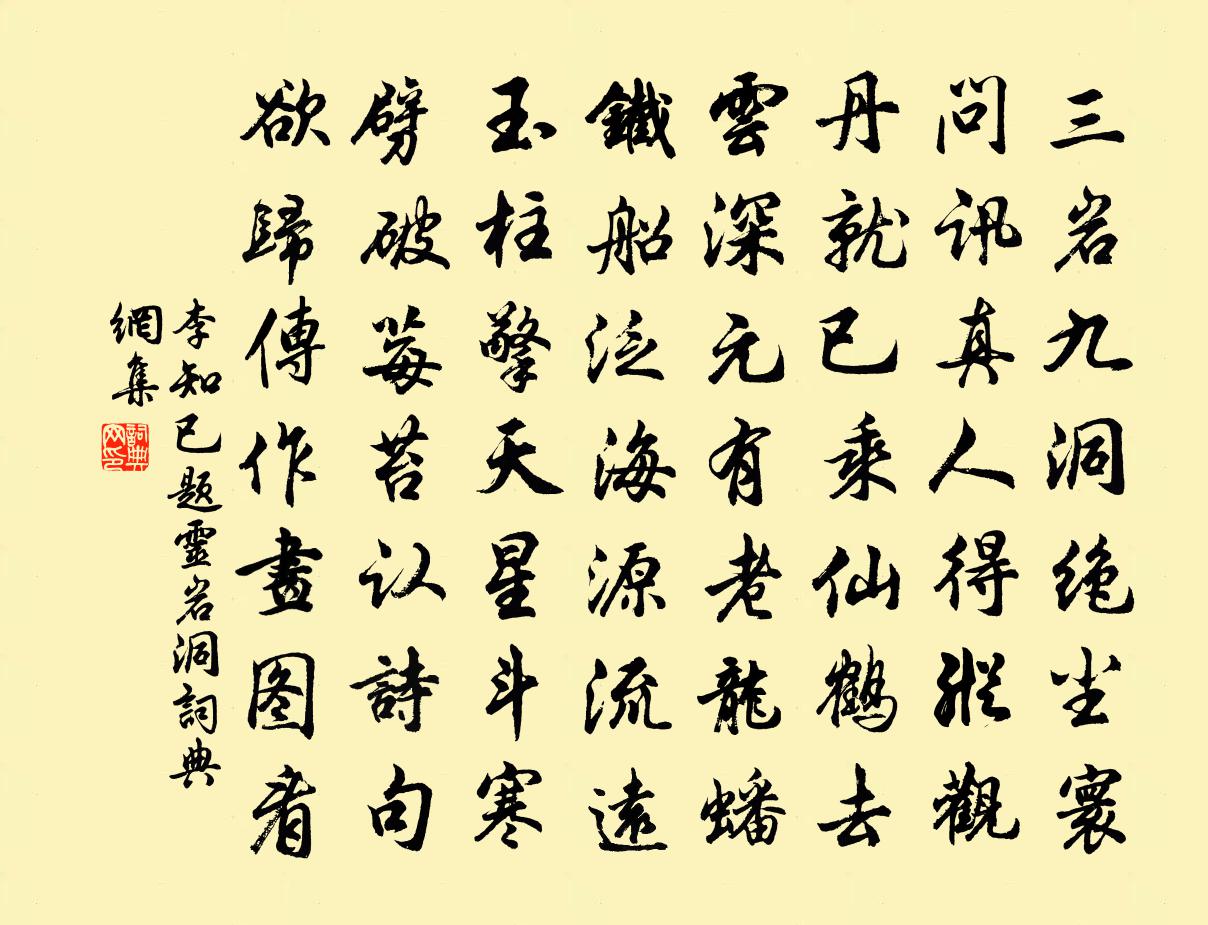 三岩九洞绝尘寰
问讯真人得縱觀
丹就已乘仙鶴去
雲深元有老龍蟠
鐵船泛海源流遠
玉柱擎天星斗寒
劈破莓苔认詩句
欲歸傳作畫图看
李知已題靈岩洞詞典
網集
詞典
网印